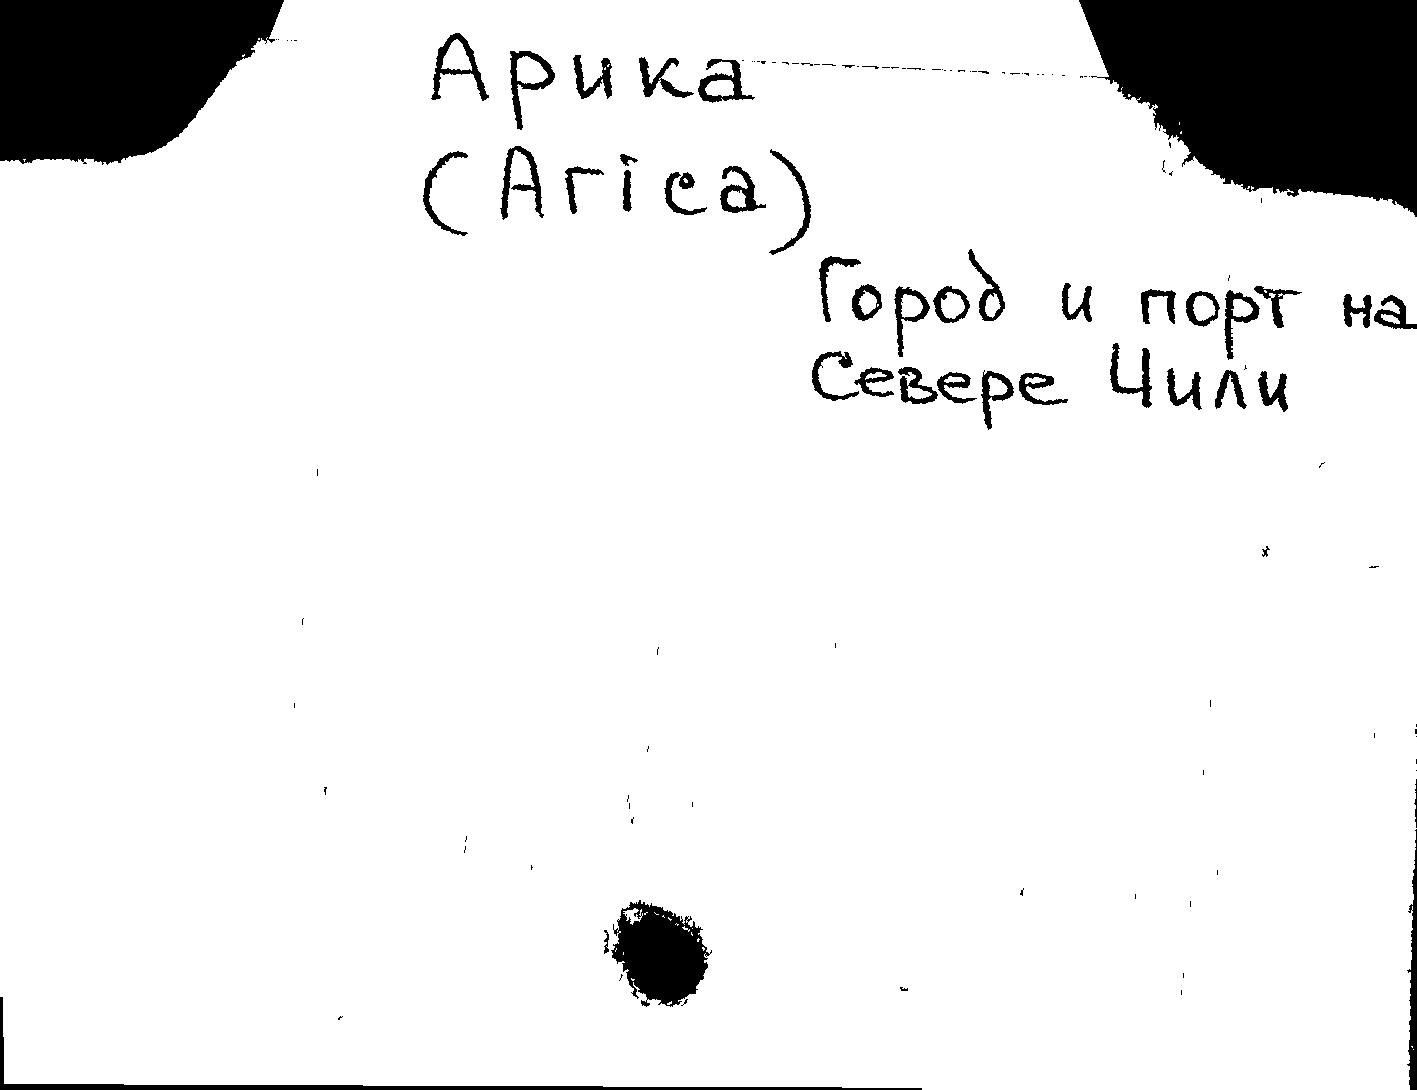 Арика
(Arica)
Город и порт на
Севере Чили